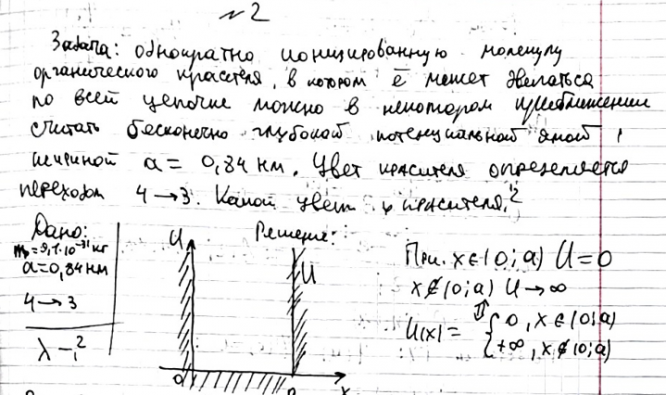 №2
Задача: однократно ионизированную молекулу
органического красителя, в котором ē может двигаться
по всей цепочке можно в некотором приближении
считать бесконечно глубокой потенциальной ямой,
шириной a = 0,84 нм. Цвет красителя определяется
переходом 4→3. Какой цвет у красителя?
Дано:
m = 9,1·10⁻³¹ кг
a = 0,84 нм
4→3
λ – ?
Решение:
U
U
0
a
x
При x∈(0;a) U=0
x∉(0;a) U→∞
⇕
U(x) = { 0, x∈(0;a)
+∞, x∉(0;a)